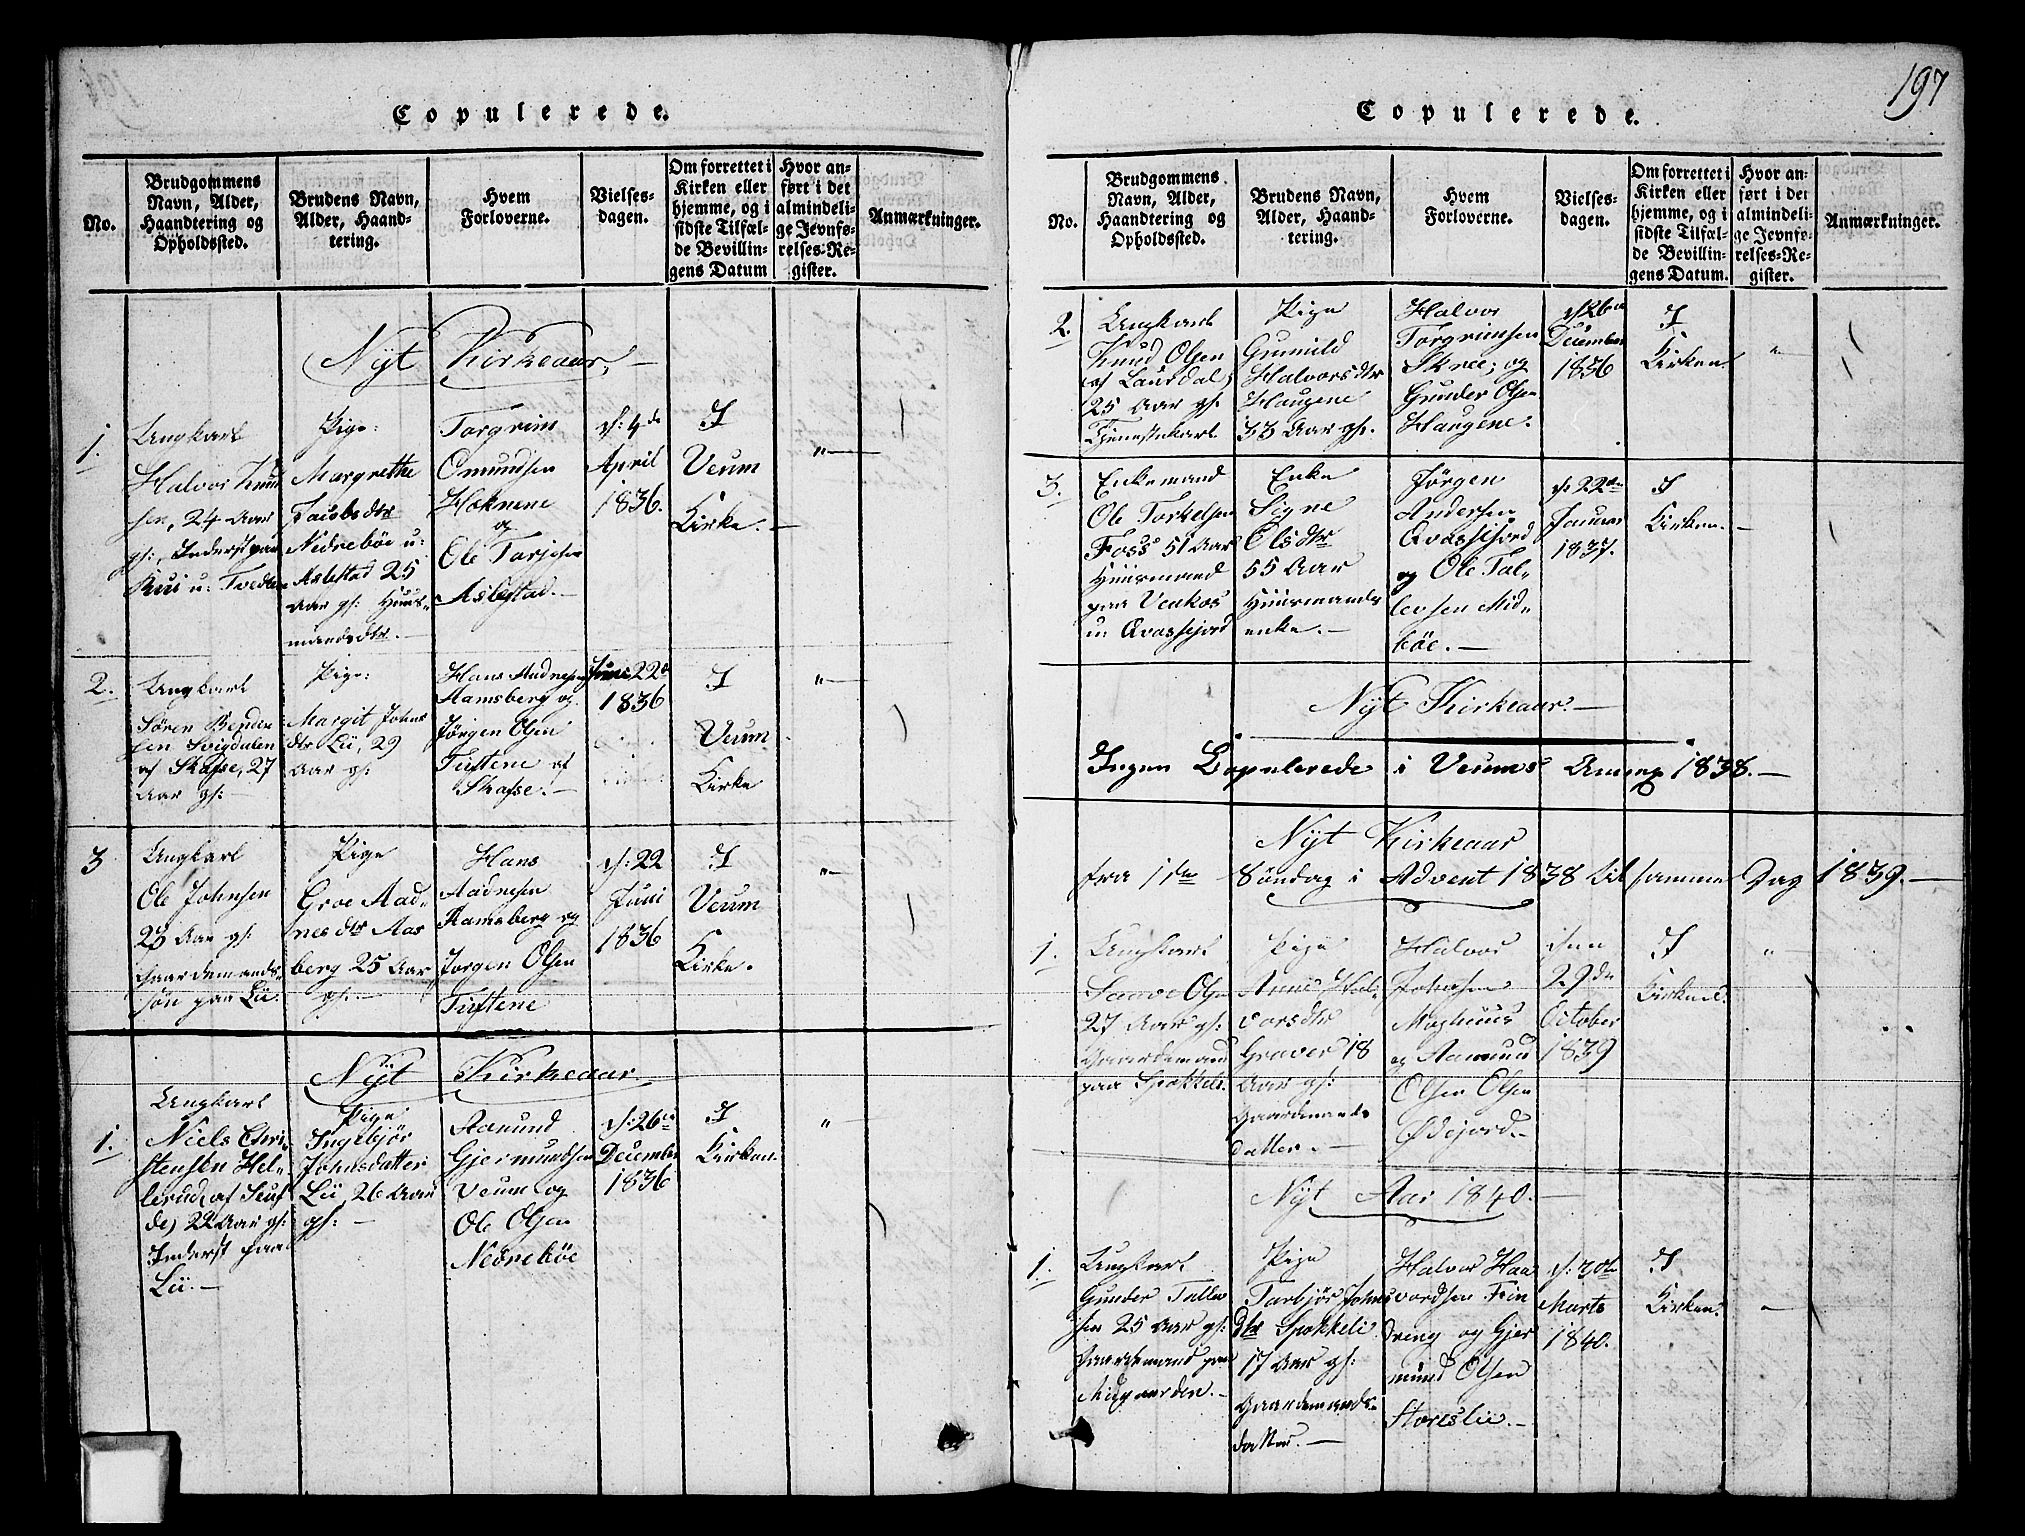 Copulerede.
No.
Brudgommens Navn, Alder, Haandtering og Opholdssted.
Brudens Navn, Alder, Haandtering.
Hvem Forloverne.
Vielsesdagen.
Om forrettet i Kirken eller hjemme, og i sidste Tilfælde Bevillingens Datum
Hvor anført i det almindelige Jevnførelses-Register.
Anmærkninger.
Nyt Kirkeaar.
1.
Ungkarl
Halvor Knud
sen, 24 Aar
gl:, Inderst paa
Rui u: Tvedten
Pige:
Margrethe
Nidrebøe u:
Aslestad 25
Aar gl: Huus-
mandsdtr. -
Torgrim
Omundsen
Hoknene
og
Ole Tarjesen
Aslestad. -
d: 4de
April
1836.
I
Veum
Kirke. -
"
2.
Ungkarl
Søren Benden
sen Svigdalen
af Skafse, 27
Aar gl: -
Pige:
Margit Johns
dtr Lii, 29
Aar gl:
Hans Aadnesen
Ramsberg og
Jørgen Olsen
Tuftene af
Skafse. -
Juni 22de
1836
I
Veum
Kirke
"
3
Ungkarl
Ole Johnsen
23 Aar gl:
Gaardemands-
søn paa Lii.
Pige
Groe Aad-
nesdtr Aas
berg 25 Aar
gl: -
Hans
Aadnesen
Ramsberg og
Jørgen Olsen
Tuftene
d: 22
Juni
1836
I
Veum
Kirke.
"
Nyt Kirkeaar.
1.
Ungkarl
Niels Chri-
stensen Hel-
lerud, af
de, 22 Aar gl:
Inderst paa
Lii. -
Pige
Ingebjør
Johnsdatter
Lii, 26 Aar
gl: -
Aamund
Gjermundsen
Veum og
Ole Olsen
Nedrebøe
d: 26de
December
1836
I
Kirken.
"
197
Copulerede.
No.
Brudgommens Navn, Alder, Haandtering og Opholdssted.
Brudens Navn, Alder, Haandtering.
Hvem Forloverne.
Vielsesdagen.
Om forrettet i Kirken eller hjemme, og i sidste Tilfælde Bevillingens Datum.
Hvor anført i det almindelige Jevnførelses-Register.
Anmærkninger.
2.
Ungkarl
Knud Olsen
af Laurdal,
25 Aar gl:
Tjenestekarl
Pige
Gunnild
Halvorsdtr
Haugene
33 Aar gl:
Halvor
Torgrimsen
Skree, og
Gunder Olsen
Haugene.
d: 26de
December
1836
I
Kirken.
"
3.
Enkemand
Ole Torkelsen
Foss 51 Aar
Huusmand
paa
u: Qvassfjord
Enke
Signe
Olsdtr
55 Aar
Huusmands
enke. -
Jørgen
Andersen
Qvassfjord
og Ole Tal-
levsen Mid-
bøe. -
d: 22de
Januar
1837.
I
Kirken. -
Nyt Kirkeaar. -
Ingen Copulerede i Veums Annex 1838. -
Nyt Kirkeaar
fra 1ste Søndag i Advent 1838 til samme Dag 1839. -
1.
Ungkarl
Olsen
27 Aar gl:
Gaardemand
paa Spokkeli.
Pige
Anne Hal-
vorsdtr
Graver 18
Aar gl:
Gaardmands
datter. -
Halvor
Johnsen
Moghuus
og Aamund
Olsen Olsen
Ødejord. -
den
29de
October
1839
I
Kirken.
"
Nyt Aar 1840. -
1.
Ungkarl
Gunder Tallev
sen 25 Aar gl:
Gaardemand paa
Midgaarden. -
Pige
Torbjør Johns
dtr Spokkeli
17 Aar gl:
Gaardemands-
datter. -
Halvor Haa
vordsen Fein
dreng og Gjer
mund Olsen
Storeslii. -
Marts
1840.
I
Kirken.
"